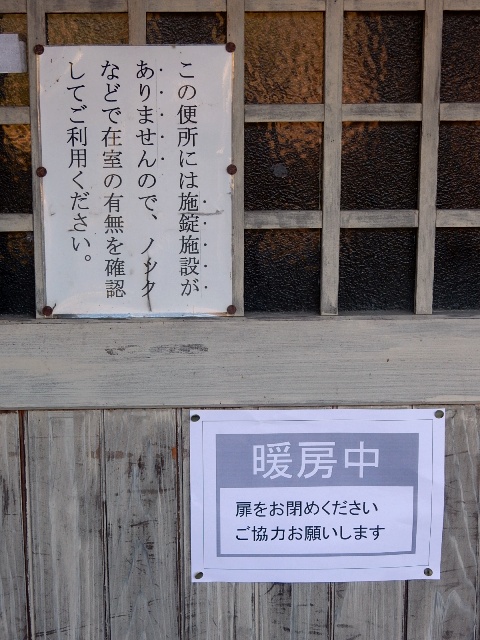 この便所には施錠施設が
ありませんので、ノック
などで在室の有無を確認
してご利用ください。
暖房中
扉をお閉めください
ご協力お願いします